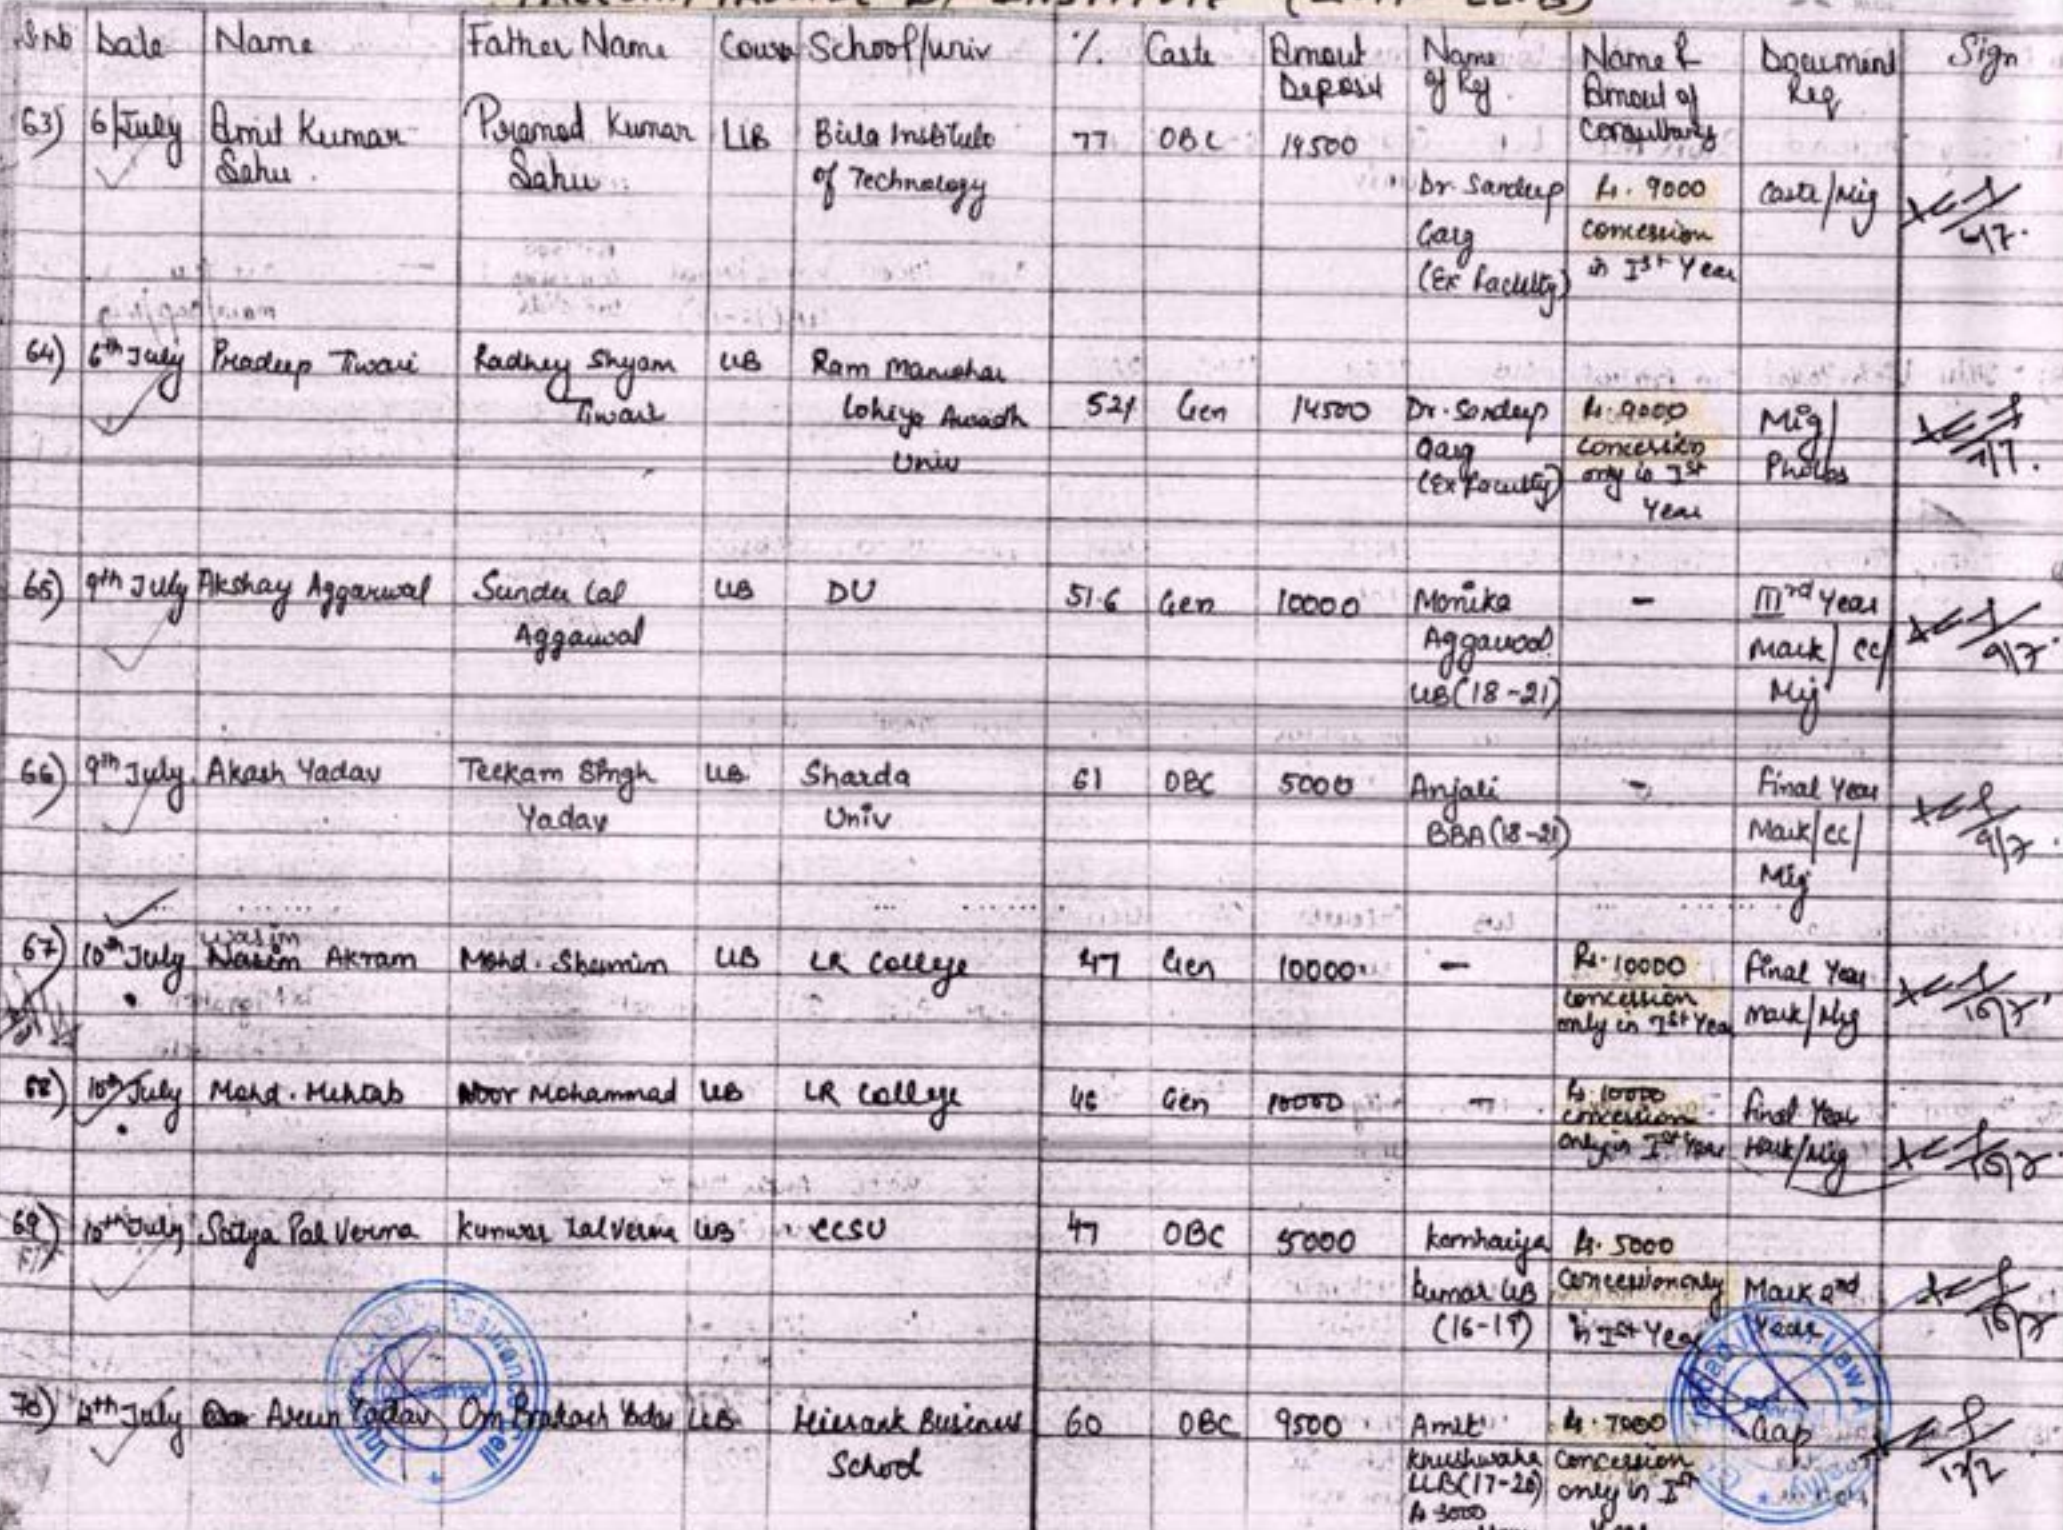 S.No Date Name Father Name Course School/univ % Caste Amout Deposit Name of Ref. Name & Amout of Consultancy Document Req Sign
63) 6/July Amit Kumar Sahu. Pramod Kumar Sahu LLB Birla Institute of Technology 77 OBC 14500 Dr. Sandeep Garg (Ex Faculty) Rs. 9000 concession in Ist Year Caste/Mig
64) 6th July Pradeep Tiwari Radhey Shyam Tiwari LLB Ram Manohar Lohiya Awadh Univ 52% Gen 14500 Dr. Sandeep Garg (Ex faculty) Rs. 9000 concession only in Ist Year Mig/ Photos 7/7.
65) 9th July Akshay Aggarwal Sunder Lal Aggarwal LLB DU 51.6 Gen 10000 Monika Aggarwal LLB (18-21) - IIIrd Year Mark/ CC/ Mig 9/7
66) 9th July Akash Yadav Teekam Singh Yadav LLB Sharda Univ 61 OBC 5000 Anjali BBA (18-21) - Final Year Mark/CC/ Mig 9/7
67) 10th July Wasim Akram Mohd. Shamim LLB LR College 47 Gen 10000 - Rs. 10000 concession only in Ist Year Final Year Mark/Mig 10/7
68) 10th July Mohd. Mehtab Noor Mohammad LLB LR College 46 Gen 10000 - Rs. 10000 concession only in Ist Year Final Year Mark/Mig 10/7
69) 10th July Satya Pal Verma Kunwar Lal Verma LLB CCSU 47 OBC 5000 Kumar LLB (16-19) Rs. 5000 Concession only in Ist Year Mark 2nd Year 10/7
70) July Arun Yadav Om Prakash Yadav LLB Hierank Business School 60 OBC 9500 Amit Khushwaha LLB (17-20) Rs 3000 Rs. 7000 Concession only in Ist Year Gap 12/7